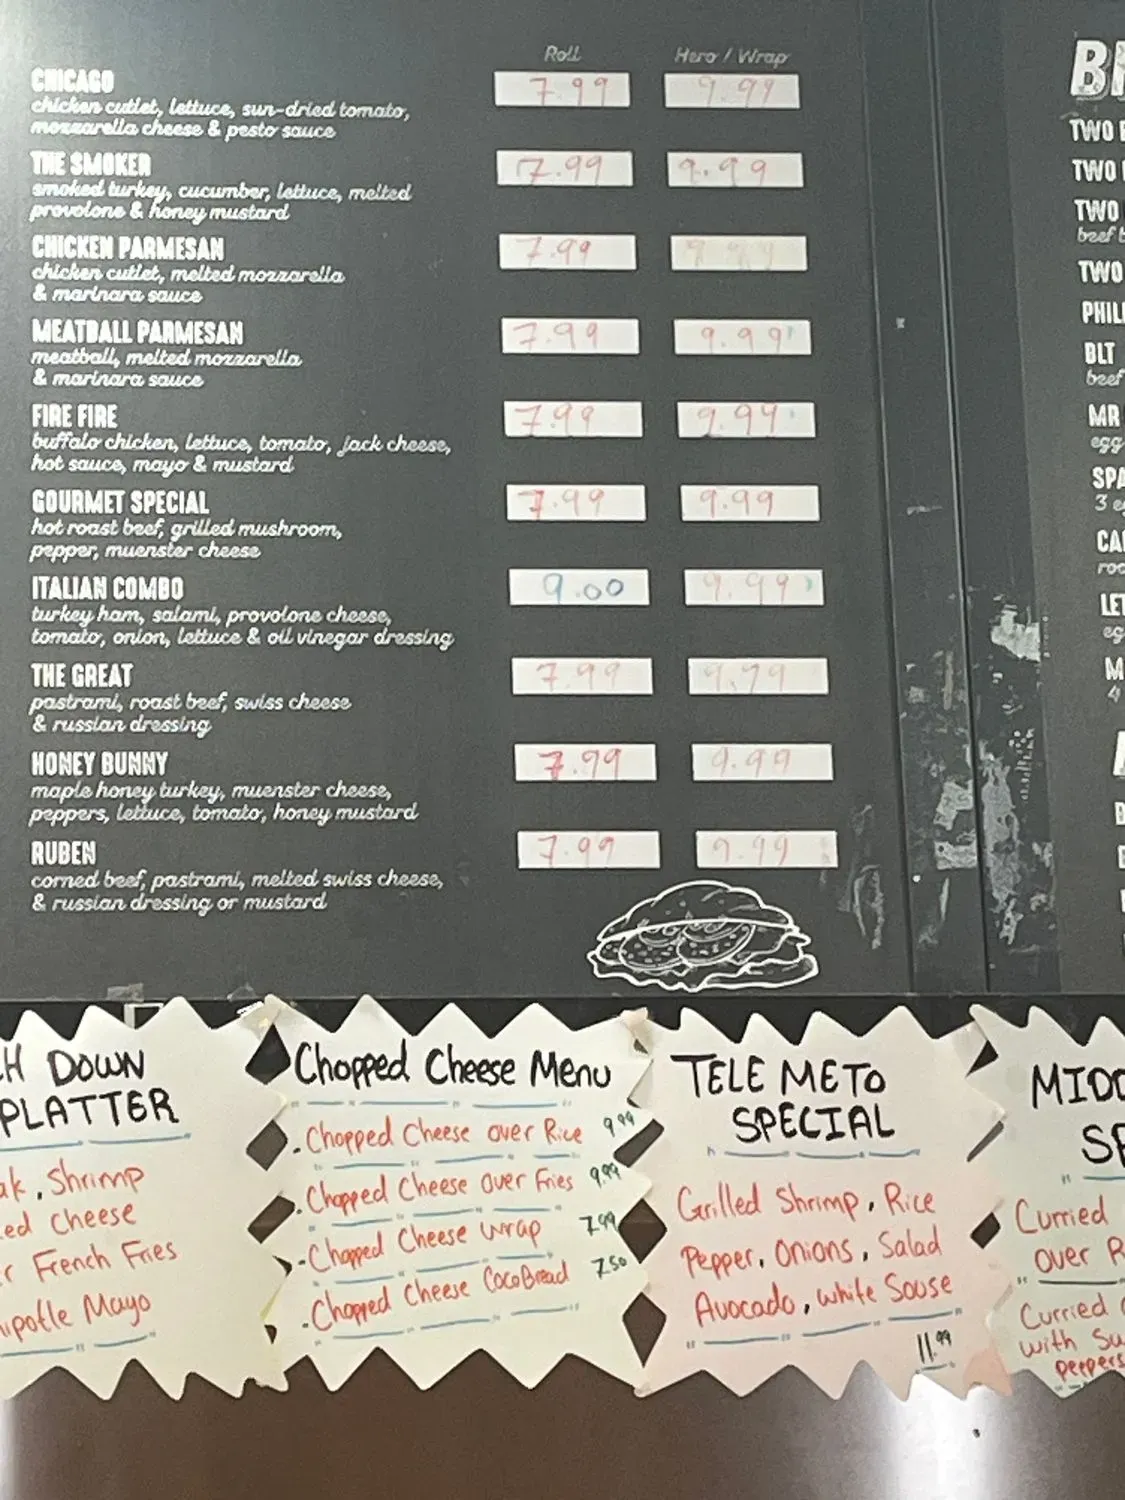 Roll Hero / Wrap
CHICAGO 7.99 9.99
chicken cutlet, lettuce, sun-dried tomato,
mozzarella cheese & pesto sauce
THE SMOKER 7.99 9.99
smoked turkey, cucumber, lettuce, melted
provolone & honey mustard
CHICKEN PARMESAN 7.99 9.99
chicken cutlet, melted mozzarella
& marinara sauce
MEATBALL PARMESAN 7.99 9.99
meatball, melted mozzarella
& marinara sauce
FIRE FIRE 7.99 9.99
buffalo chicken, lettuce, tomato, jack cheese,
hot sauce, mayo & mustard
GOURMET SPECIAL 7.99 9.99
hot roast beef, grilled mushroom,
pepper, muenster cheese
ITALIAN COMBO 9.00 9.99
turkey ham, salami, provolone cheese,
tomato, onion, lettuce & oil vinegar dressing
THE GREAT 7.99 9.79
pastrami, roast beef, swiss cheese
& russian dressing
HONEY BUNNY 7.99 9.99
maple honey turkey, muenster cheese,
peppers, lettuce, tomato, honey mustard
RUBEN 7.99 9.99
corned beef, pastrami, melted swiss cheese,
& russian dressing or mustard
TWO
TWO
TWO
beef
TWO
BLT
beef
MR
egg
3
DOWN
PLATTER
Shrimp
Cheese
French Fries
Mayo
Chopped Cheese Menu
Chopped Cheese over Rice 9.99
Chopped Cheese over Fries 9.99
Chopped Cheese wrap 7.99
Chopped Cheese CocoBread 7.50
TELE METO
SPECIAL
Grilled Shrimp, Rice
Pepper, Onions, Salad
Avocado, white Souse
11.99
Curried
over
Curried
with
peepers